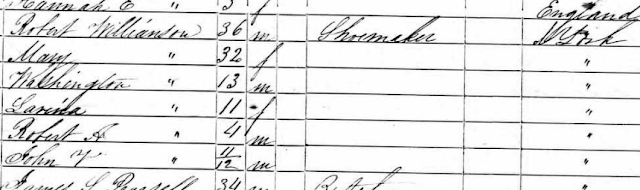 Hannah E " 3 f England
Robert Williamson 36 m Shoemaker N York
Mary " 32 f "
Washington " 13 m "
Lavina " 11 f "
Robert A " 4 m "
John Y " 11/12 m "
James S 34 m